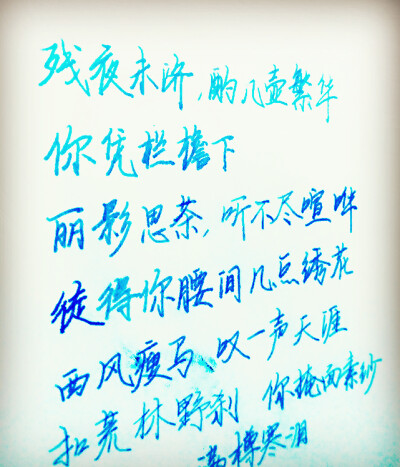 残夜未济,酌几壶繁华
你凭栏檐下
丽影思茶,听不尽喧哗
徒得你腰间几点绣花
西风瘦马、叹一声天涯
扣荒林野刹 你掩面素纱
满樽寒泪